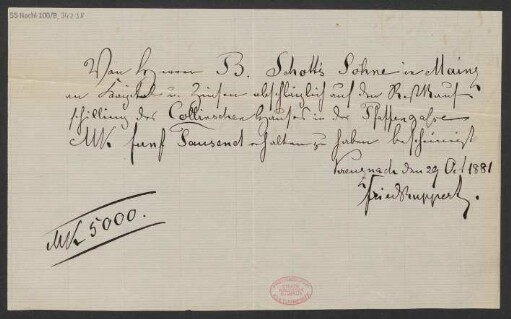 Von Herren B. Schott's Söhne in Mainz
an Kapital u. Zinsen abschläglich auf den Restkauf
schilling des Collin'schen Hauses in der Pfaffengasse
MK fünf Tausend erhalten zu haben bescheinigt
Kreuznach den 29 Oct 1881
Fried Ruppert.
MK 5000.